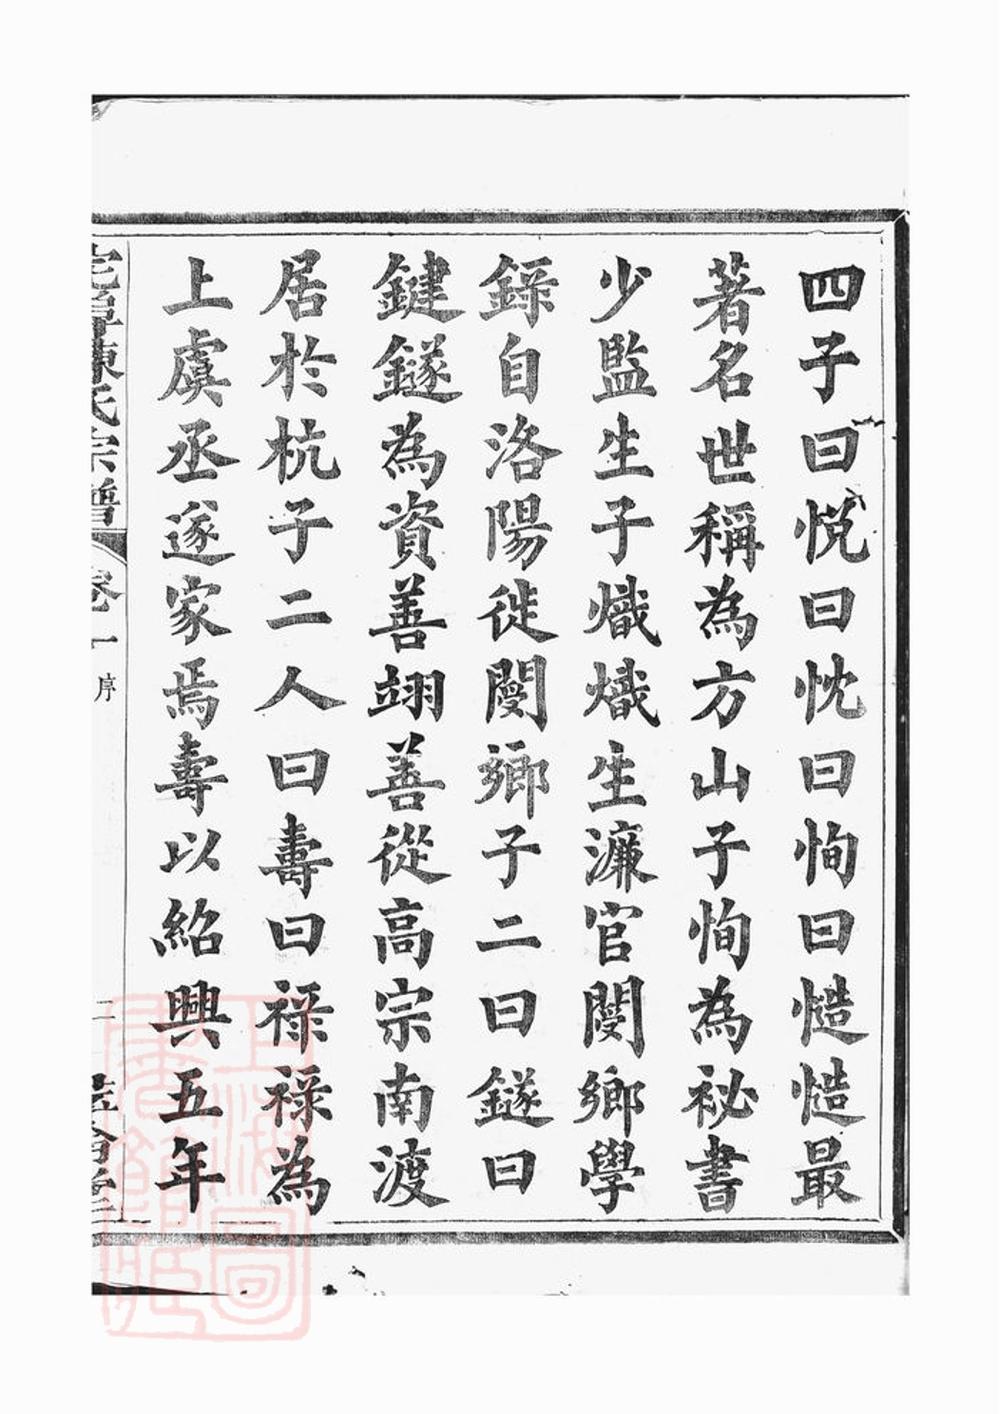 四子曰悦曰忱曰恂曰慥慥最
著名世稱為方山子恂為祕書
少監生子熾熾生濂官閿鄉學
錄自洛陽徙閿鄉子二曰鐩曰
鍵鐩為資善翊善從高宗南渡
居於杭子二人曰壽曰祿祿為
上虞丞遂家焉壽以紹興五年
陳氏宗譜
卷一
序
二